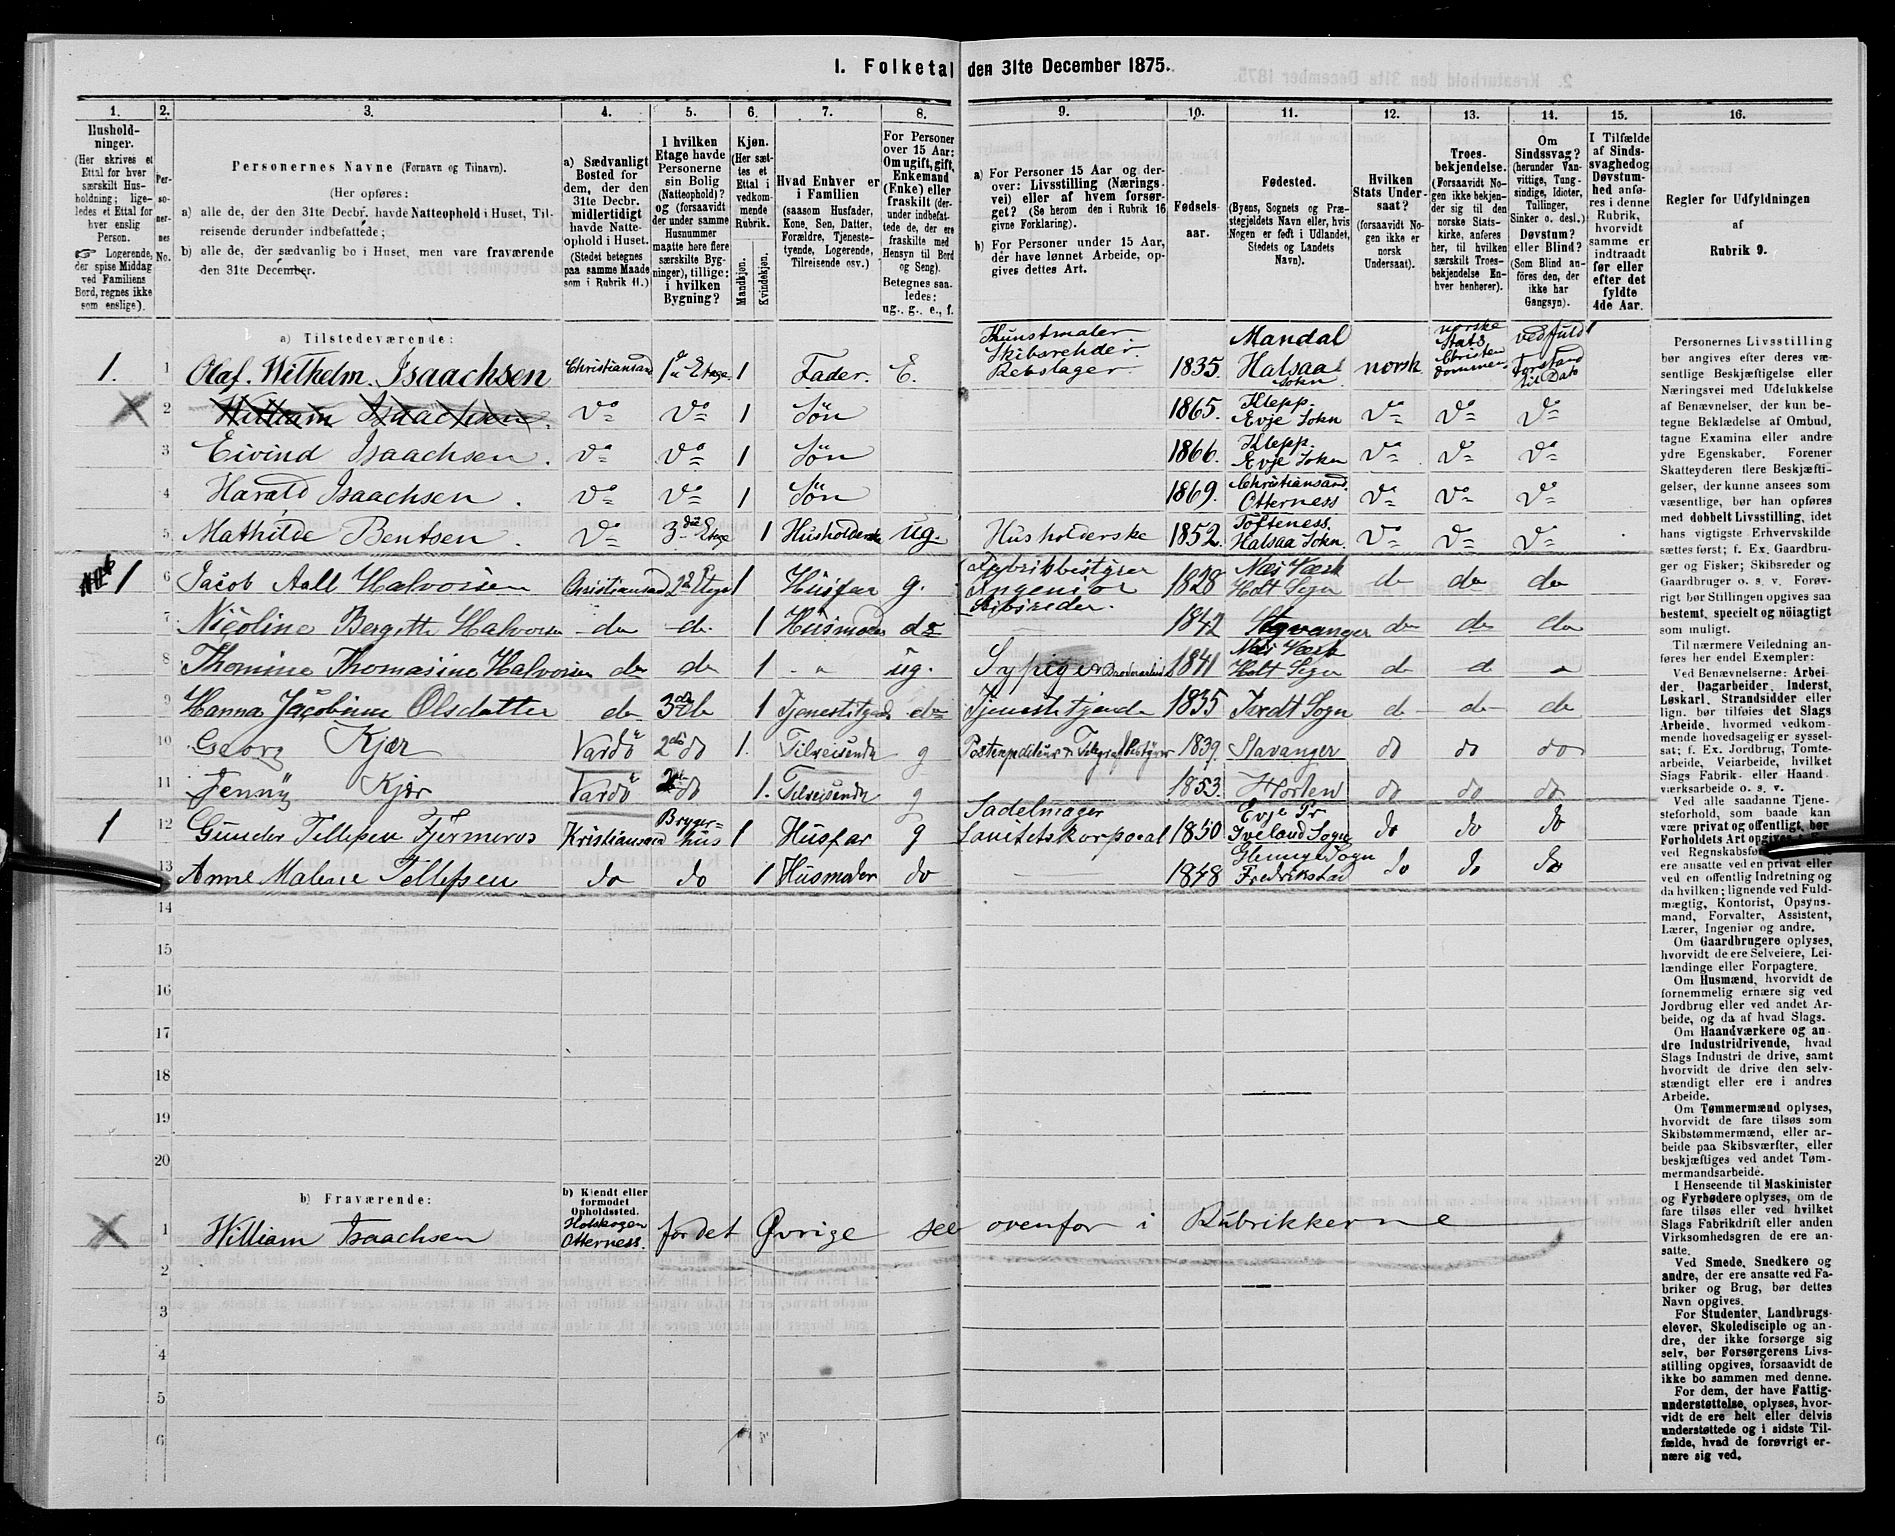 1. Folketal den 31te December 1875.
1. 2. 3. 4. 5. 6. 7. 8. 9. 10. 11. 12. 13. 14. 15. 16.
Hushold-
ninger.
(Her skrives et
Ettal for hver
særskilt Hus-
holdning; lige-
ledes et Ettal for
hver enslig
Person.
☞ Logerende,
der spise Middag
ved Familiens
Bord, regnes ikke
som enslige).
Per-
so-
ner-
nes
No.
Personernes Navne (Fornavn og Tilnavn).
(Her opføres:
a) alle de, der den 31te Decbr. havde Natteophold i Huset, Til-
reisende derunder indbefattede;
b) alle de, der sædvanlig bo i Huset, men vare fraværende
den 31te December.
a) Sædvanligt
Bosted for
dem, der den
31te Decbr.
midlertidigt
havde Natte-
ophold i Huset.
(Stedet betegnes
paa samme Maade
som i Rubrik 11.)
I hvilken
Etage havde
Personerne
sin Bolig
(Natteophold)?
og (forsaavidt
der under samme
Husnummer
maatte høre flere
særskilte Byg-
ninger), tillige:
i hvilken
Bygning?
Kjøn.
(Her sæt-
tes et
Ettal i
vedkom-
mende
Rubrik.
Mandkjøn.
Kvindekjøn.
Hvad Enhver er
i Familien
(saasom Husfader,
Kone, Søn, Datter,
Forældre, Tjeneste-
tyende, Logerende,
Tilreisende osv.)
For Personer
over 15 Aar:
Om ugift, gift,
Enkemand
(Enke) eller
fraskilt (der-
under indbefat-
tede de, der ere
fraskilte med
Hensyn til Bord
og Seng).
Betegnes saa-
ledes:
ug., g., e., f.
a) For Personer 15 Aar og der-
over: Livsstilling (Nærings-
vei) eller af hvem forsør-
get? (Se herom den i Rubrik 16
givne Forklaring).
b) For Personer under 15 Aar,
der have lønnet Arbeide, op-
gives dettes Art.
Fødsels-
aar.
Fødested.
(Byens, Sognets og Præ-
stegjeldets Navn eller, hvis
Nogen er født i Udlandet,
Stedets og Landets
Navn).
Hvilken
Stats Under-
saat?
(forsaavidt No-
gen ikke er
norsk
Undersaat).
Troes-
bekjendelse.
(Forsaavidt No-
gen ikke bekjen-
der sig til den
norske Stats-
kirke, anføres
her, til hvilken
særskilt Troes-
bekjendelse En-
hver henhører).
Om
Sindssvag?
(herunder Van-
vittige, Tung-
sindige, Idioter,
Tullinger,
Sinker o. desl.)
Døvstum?
eller Blind?
(Som Blind an-
føres den, der
ikke har
Gangsyn).
I Tilfælde
af Sinds-
svaghed og
Døvstum-
hed anfø-
res i denne
Rubrik,
hvorvidt
samme er
indtraadt
før eller
efter det
fyldte
4de Aar.
Regler for Udfyldningen
af
Rubrik 9.
a) Tilstedeværende:
1. 1 Olaf Wilhelm Isaachsen Christiansand 1ste Etage 1 Fader E. Kunstmaler Skibsrehder Rebslager 1835. Mandal Halsaa Sokn norsk norske Stats Christendommen ved fuld Forstand til Dato
2 William Isaachsen. Do Do 1 Søn 1865. Klepp. Evje Sokn Do Do Do
3 Eivind Isaachsen. Do Do 1 Søn 1866. Klepp. Evje Sokn Do Do Do
4 Harald Isaachsen. Do Do 1 Søn 1869. Christiansand Otterness Do Do Do
5 Mathilde Bentsen. Do 3die Etage 1 Husholderske ug. Husholderske 1852. Tofteness. Halsaa Sokn Do Do Do
1 6 Jacob Aall Halvorsen Christiansand 2 Etage 1 Husfar g. Fabrikbestyrer Ingeniør Skibsreder. 1828 Næs Værk Holt Sogn do do do
7 Nicoline Bergitte Halvorsen do do 1 Husmoder do 1842 Stavanger do do do
8 Thomine Thomasine Halvorsen do do 1 ug. Sypige 1841 Næs Værk Holt Sogn do d
9 Hanna Jacobine Olsdatter do 3 do 1 Tjenestetyende do Tjenestetyende 1835 Sogn do do do
10 Georg Kjær Vardö 2 do 1. Tilreisende g Postexpeditør & Telegrafbestyrer 1839. Stavanger do do do
11 Jenny Kjær Vardö do 1. Tilreisende g 1853. Horten do do do
1 12 Gunder Tellefsen Fjermeros Kristianssand Bryger-hus 1 Husfar g Sadelmager Sanitetskorporal 1850 Evje Pr Iveland Sogn do do do
13 Anne Malene Tellefsen do do 1 Husmoder do 1848 Glemmge Sogn Fredrikstad do do do
14
15
16
17
18
19
20
b) Fraværende:
b) Kjendt eller
formodet
Opholdssted.
1 William Isaachsen Otterness. for det Øvrige see ovenfor i Rubrikkerne
2
3
4
5
6
Personernes Livsstilling
bør angives efter deres væ-
sentlige Beskjæftigelse eller
Næringsvei med Udelukkelse
af Benævnelser, der kun be-
tegne Beklædelse af Ombud,
tagne Examina eller andre
ydre Egenskaber. Forener
Skatteyderen flere Beskjæfti-
gelser, der kunne ansees som
væsentlige, bør han opføres
med dobbelt Livsstilling, idet
hans vigtigste Erhvervskilde
sættes først; f. Ex. Gaardbru-
ger og Fisker; Skibsreder og
Gaardbruger o. s. v. Forøv-
rigt bør Stillingen opgives saa
bestemt, specielt og nöiagtigt
som muligt.
Til nærmere Veiledning an-
føres her endel Exempler:
Ved Benævnelserne: Arbei-
der, Dagarbeider, Inderst,
Løskarl, Strandsidder eller
lign. bør tilføies det Slags
Arbeide, hvormed vedkom-
mende hovedsagelig er syssel-
sat; f. Ex. Jordbrug, Tomte-
arbeide, Veiarbeide, hvilket
Slags Fabrik- eller Haand-
værksarbeide o. s. v.
Ved alle saadanne Tjene-
steforhold, som baade kan
være privat og offentligt, bør
Forholdets Art opgives
ved Regnskabsfør
ere ansatte ved en privat eller
ved en offentlig Indretning og
da hvilken; lignende ved Fuld-
mægtig, Kontorist, Opsyns-
mand, Forvalter, Assistent,
Lærer, Ingeniør og andre.
Om Gaardbrugere oplyses,
hvorvidt de ere Selveiere, Lei-
lændinge eller Forpagtere.
Om Husmænd, hvorvidt de
fornemmelig ernære sig ved
Jordbrug eller ved andet Ar-
beide, og da af hvad Slags.
Om Haandværkere og an-
dre Industridrivende, hvad
Slags Industri de drive, samt
hvorvidt de drive den selv-
stændigt eller ere i andres
Arbeide.
Om Tømmermænd oplyses,
hvorvidt de fare tilsøs som
Skibstømmermænd, eller ar-
beide paa Skibsværfter, eller
beskjæftiges ved andet Tøm-
mermandsarbeide.
I Henseende til Maskinister
og Fyrbødere oplyses, om de
fare tilsøs eller ved hvilket
Slags Fabrikdrift eller anden
Virksomhedsgren de ere an-
satte.
Ved Smede, Snedkere og
andre, der ere ansatte ved Fa-
briker og Brug, bør dettes
Navn opgives.
For Studenter, Landbrugs-
elever, Skoledisciple og an-
dre, der ikke forsørge sig
selv, bør Forsørgerens Livs-
stilling opgives, forsaavidt de
ikke bo sammen med denne.
For dem, der have Fattig-
understøttelse, oplyses, hvor-
vidt de ere helt eller delvis
understøttede og i sidste Til-
fælde, hvad de forøvrigt er-
nære sig ved.